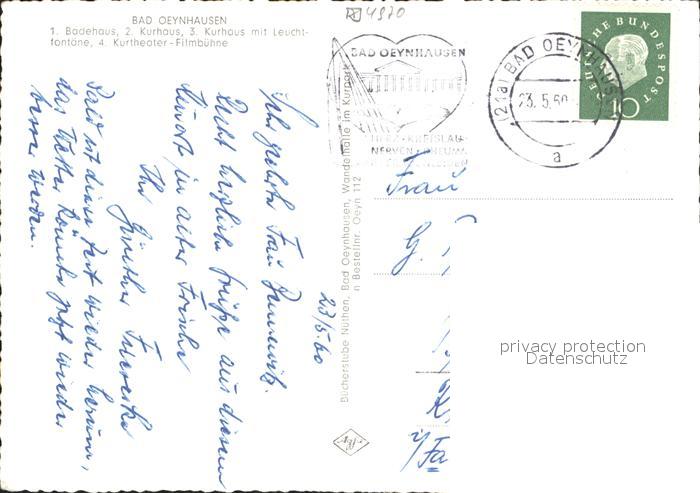 BAD OEYNHAUSEN
1. Badehaus, 2. Kurhaus, 3. Kurhaus mit Leucht-
fontäne, 4. Kurtheater-Filmbühne
4970
BAD OEYNHAUSEN
HERZ·KREISLAUF
NERVEN·RHEUMA
(21a) BAD OEYNHAUSEN
23.5.60
a
DEUTSCHE BUNDESPOST
10
23/5.60
Sehr geehrte Frau
Recht herzliche Grüße aus diesem
Kurort in alter Frische
Ihr
Günther
Bald ist diese Zeit wieder herum,
das Wetter könnte jetzt wieder
werden.
Bücherstube Nüthen, Bad Oeynhausen, Wandelhalle im Kurpark
n Bestellnr. Oeyn 112
Frau
G.
K
i/Fa
privacy protection
Datenschutz